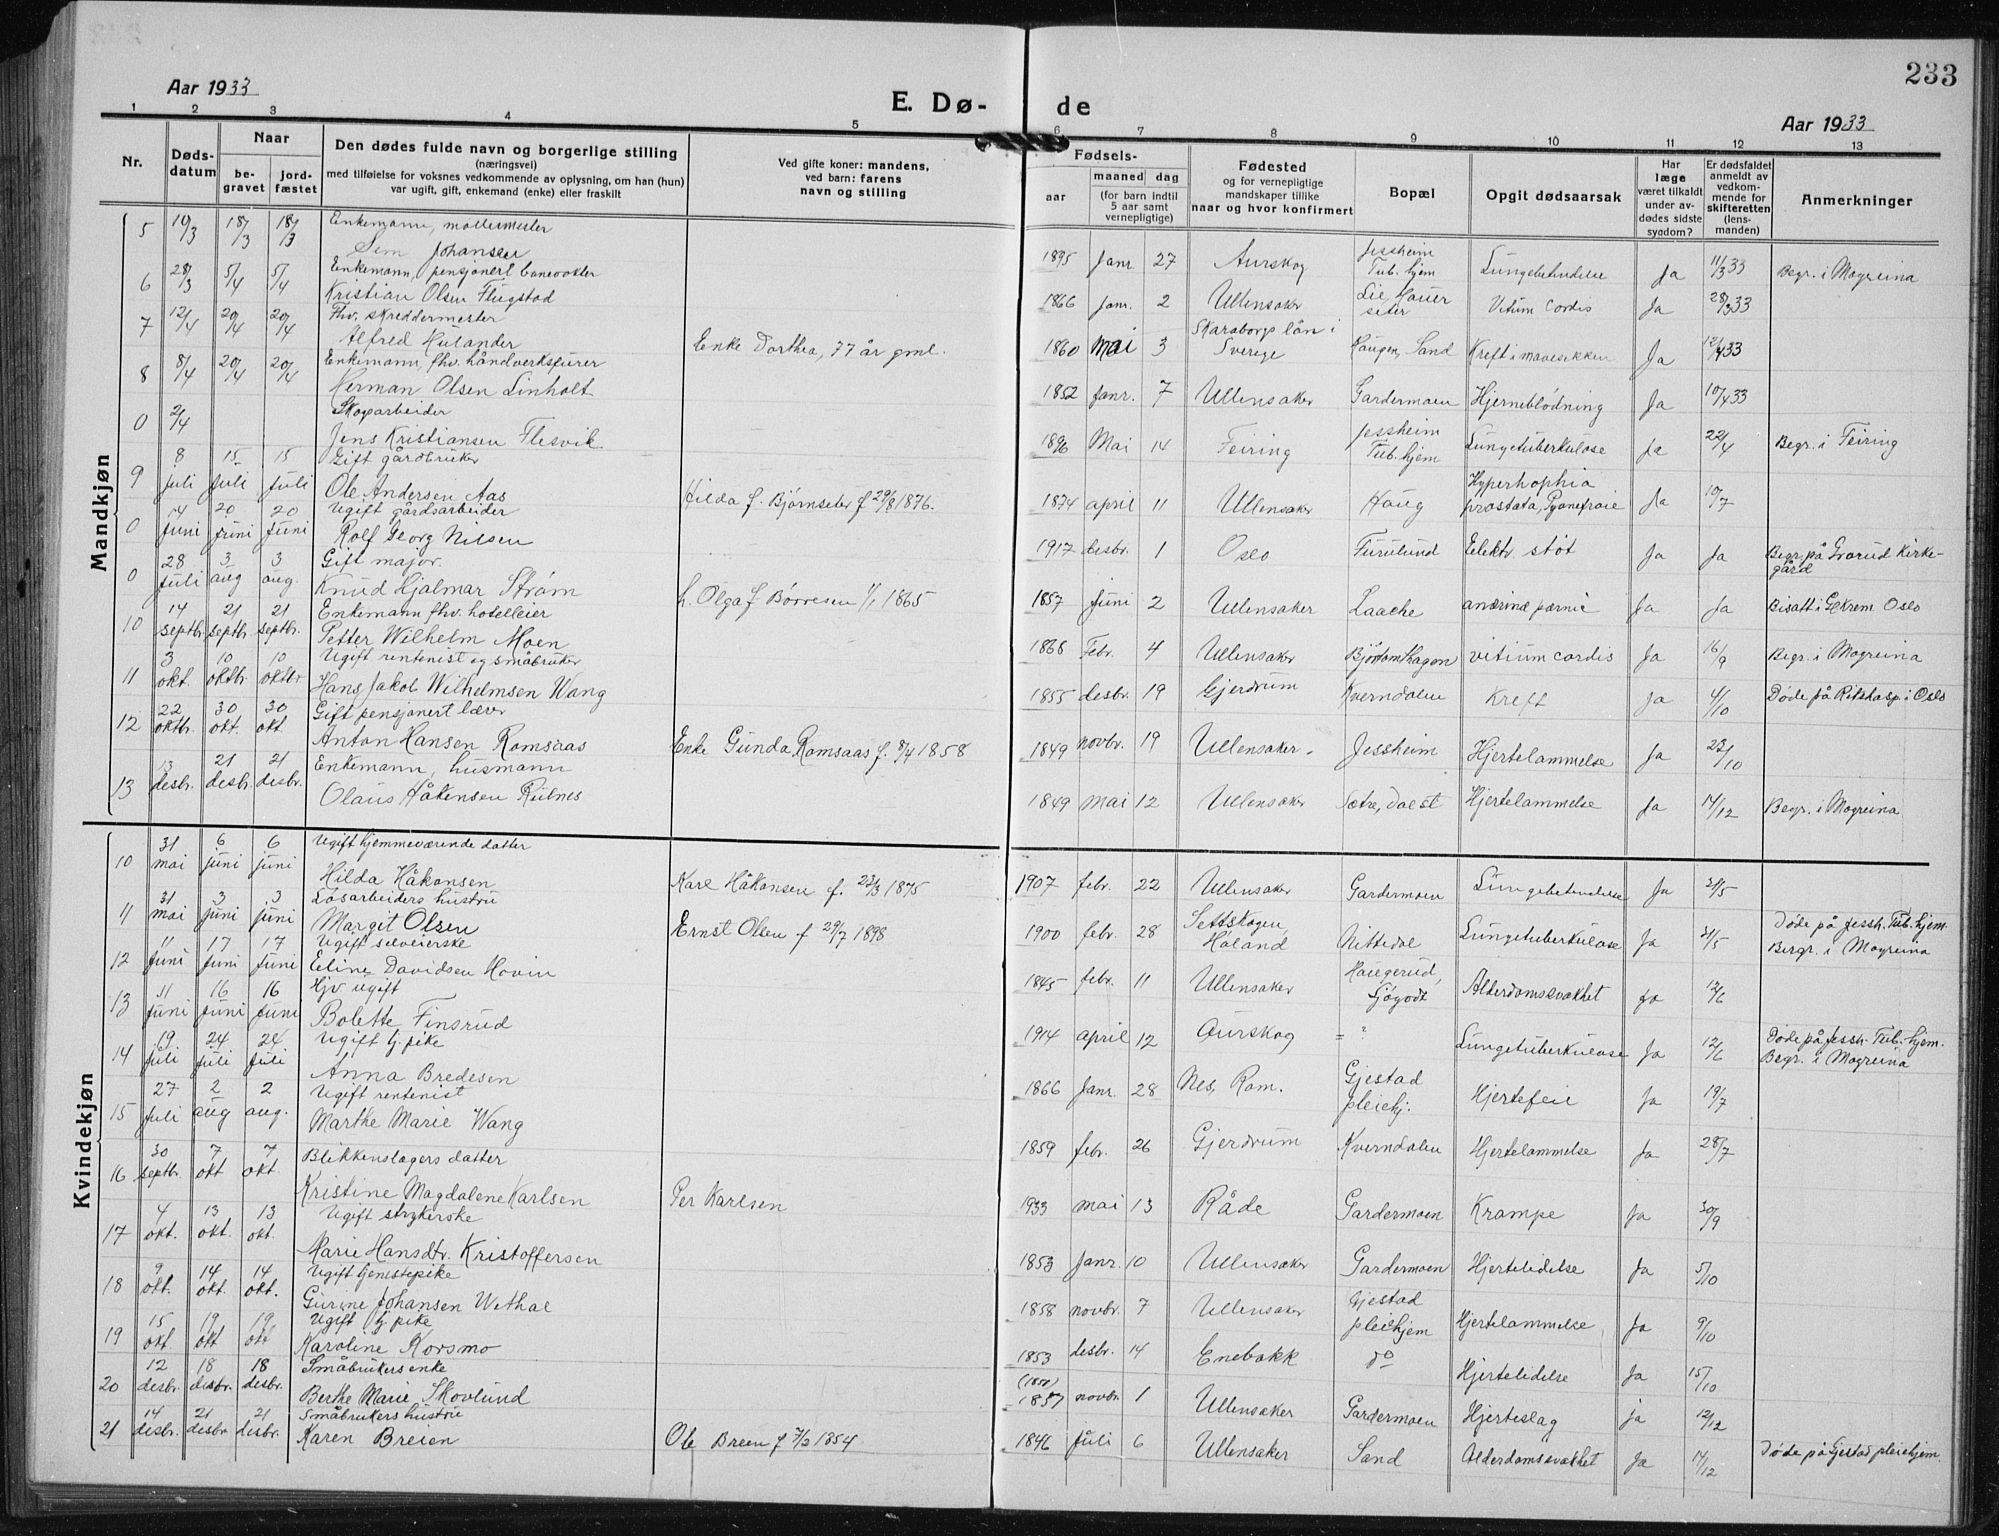 233
Aar 1933
E. Dø- de
Aar 1933
1 2 3 4 5 6 7 8 9 10 11 12 13
Nr.
Døds-
datum
Naar
be-
gravet
jord-
fæstet
Den dødes fulde navn og borgerlige stilling
(næringsvei)
med tilføielse for voksnes vedkommende av oplysning, om han (hun)
var ugift, gift, enkemand (enke) eller fraskilt
Ved gifte koner: mandens,
ved barn: farens
navn og stilling
Fødsels-
aar
maaned
dag
(for barn indtil
5 aar samt
vernepligtige)
Fødested
og for vernepligtige
mandskaper tillike
naar og hvor konfirmert
Bopæl
Opgit dødsaarsak
Har
læge
været tilkaldt
under av-
dødes sidste
sygdom?
Er dødsfaldet
anmeldt av
vedkom-
mende for
skifteretten
(lens-
manden)
Anmerkninger
Mandkjøn
5 10/3 18/3 18/3 Enkemann, møllermester
Sem Johansen 1895 Janr. 27 Aurskog Jessheim Tub.hjem Lungebetendelse Ja 11/3 33 Begr. i Mogreina
6 28/3 5/4 5/4 Enkemann, pensjonert banevokter
Kristian Olsen Flugstad 1866 Janr. 2 Ullensaker Lie, Hauer seter Vitium Cordis Ja 28/3 33
7 12/4 20/4 20/4 Fhv. skreddermester
Alfred Hulander Enke Dorthea, 77 år gml. 1860 Mai 3 Skaraborgs län i Sverige Haugen, Sand Kreft i mavesekken Ja 12/4 33
8 8/4 20/4 20/4 Enkemann, fhv. håndverksfurer
Herman Olsen Linholt 1852 Janr. 7 Ullensaker Gardermoen Hjerneblödning Ja 10/4 33
0 2/4 Skogarbeider
Jens Kristiansen Flesvik 1896 Mai 14 Feiring Jessheim Tub.hjem Lungetuberkulose Ja 22/4 Begr. i Feiring
9 8 juli 15 juli 15 juli Gift gårdbruker
Ole Andersen Aas Hilda f. Bjørnseter f 29/8 1876. 1874 april 11 Ullensaker Haug Hyperhophia prostata, Ja 10/7
0 14 Juni 20 juni 20 Juni Ugift gårdsarbeider
Rolf Georg Nilsen 1917 desbr. 1 Oslo Furulund Elektr. støt Ja Ja Begr. på Grorud Kirke-
gård
0 28 Juli 3 aug 3 aug. Gift major.
Knud Hjalmar Strøm h. Olga f Børresen 1/1 1865 1857 Juni 2 Ullensaker Laache Ja Ja Bisatt i G. Krem Oslo
10 14 septbr. 21 septbr. 21 septbr. Enkemann fhv. hotelleier
Petter Wilhelm Moen 1866 Febr. 4 Ullensaker vitium cordis Ja 16/9 Begr. i Mogreina
11 3 okt. 10 oktbr 10 oktbr Ugift rentenist og småbruker
Hans Jakob Wilhelmsen Wang 1855 desbr. 19 Gjerdrum Kverndalen Kreft Ja 4/10 Døde på Rikshosp. i Oslo
12 22 oktbr. 30 okt. 30 okt. Gift pensjonert lærer
Anton Hansen Romsaas Enke Gunda Romsaas f. 8/4 1858 1849 novbr. 19 Ullensaker Jessheim Hjertelammelse Ja 23/10
13 13 desbr. 21 desbr. 21 desbr. Enkemann, husmann
Olaus Håkensen Rulnes 1849 mai 12 Ullensaker Sætre, Dalst Hjertelammelse Ja 14/12 Begr. i Mogreina
Kvindekjøn
10 31 mai 6 juni 6 juni Ugift hjemmeværende datter
Hilda Håkonsen Karl Håkonsen f. 23/3 1875 1907 febr. 22 Ullensaker Gardermoen Lungebetendelse Ja 31/5
11 31 mai 3 juni 3 juni Løsarbeiders hustru
Margit Olsen Ernst Olsen f 29/7 1898 1900 febr. 28 Settskogen, Høland Nittedal Lungetuberkulose Ja 31/5 Døde på Jessh. Tub.hjem.
Bergr. i Mogreina
12 11 juni 17 juni 17 juni Ugift selveierske
Eline Davidsen Hovin 1845 febr. 11 Ullensaker Haugerud, Sjøgodt Alderdomssvakhet ja 12/6
13 11 Juni 16 Juni 16 Juni Hjv ugift
Bolette Finsrud 1914 april 12 Aurskog = ? Lungetuberkulose Ja 12/6 Døde på Jessh. Tub.hjem.
Begr. i Mogreina
14 19 juli 24 juli 24 juli Ugift tj. pike
Anna Bredesen 1866 Janr. 28 Nes, Rom. Gjestad pleiehj. Hjertefeil Ja 19/7
15 27 Juli 2 aug 2 aug. Ugift rentenist
Marthe Marie Wang 1859 febr. 26 Gjerdrum Kverndalen Hjertelammelse Ja 28/7
16 30 septbr. 7 okt 7 okt. Blikkenslagers datter
Kristine Magdalene Karlsen Per Karlsen 1933 mai 13 Råde Gardermoen Krampe ja 30/9
17 4 okt. 13 okt. 13 okt. Ugift strykerske
Marie Hansdtr. Kristoffersen 1853 Janr. 10 Ullensaker Gardermoen Hjertelidelse Ja 5/10
18 9 okt. 14 okt. 14 okt. Ugift tjenestepike
Gurine Johansen Wethal 1858 novbr. 7 Ullensaker Gjestad pleiehjem Hjertelammelse Ja 9/10
19 15 okt 19 okt 19 okt Ugift tj. pike
Karoline Korsmo 1853 desbr. 14 Enebakk do Hjertelidelse Ja 15/10
20 12 desbr. 18 desbr. 18 desbr. Småbrukers enke
Berthe Marie Skovlund 1857 novbr. 1 Ullensaker Gardermoen Hjerteslag ja 12/12
21 14 desbr. 21 desbr 21 desbr. Småbrukers hustru
Karen Breen Ole Breen f 7/2 1854. 1846 Juli 6 Ullensaker Sand Alderdomssvakhet Ja 14/12 Døde på Gjestad pleiehjem.